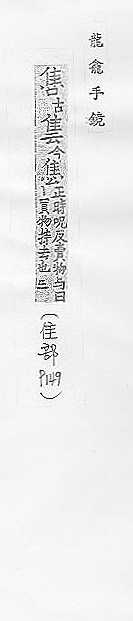 龍龕手鏡
古今
正時呪反賣物与曰
丨買物持去也三
(隹部
P149)